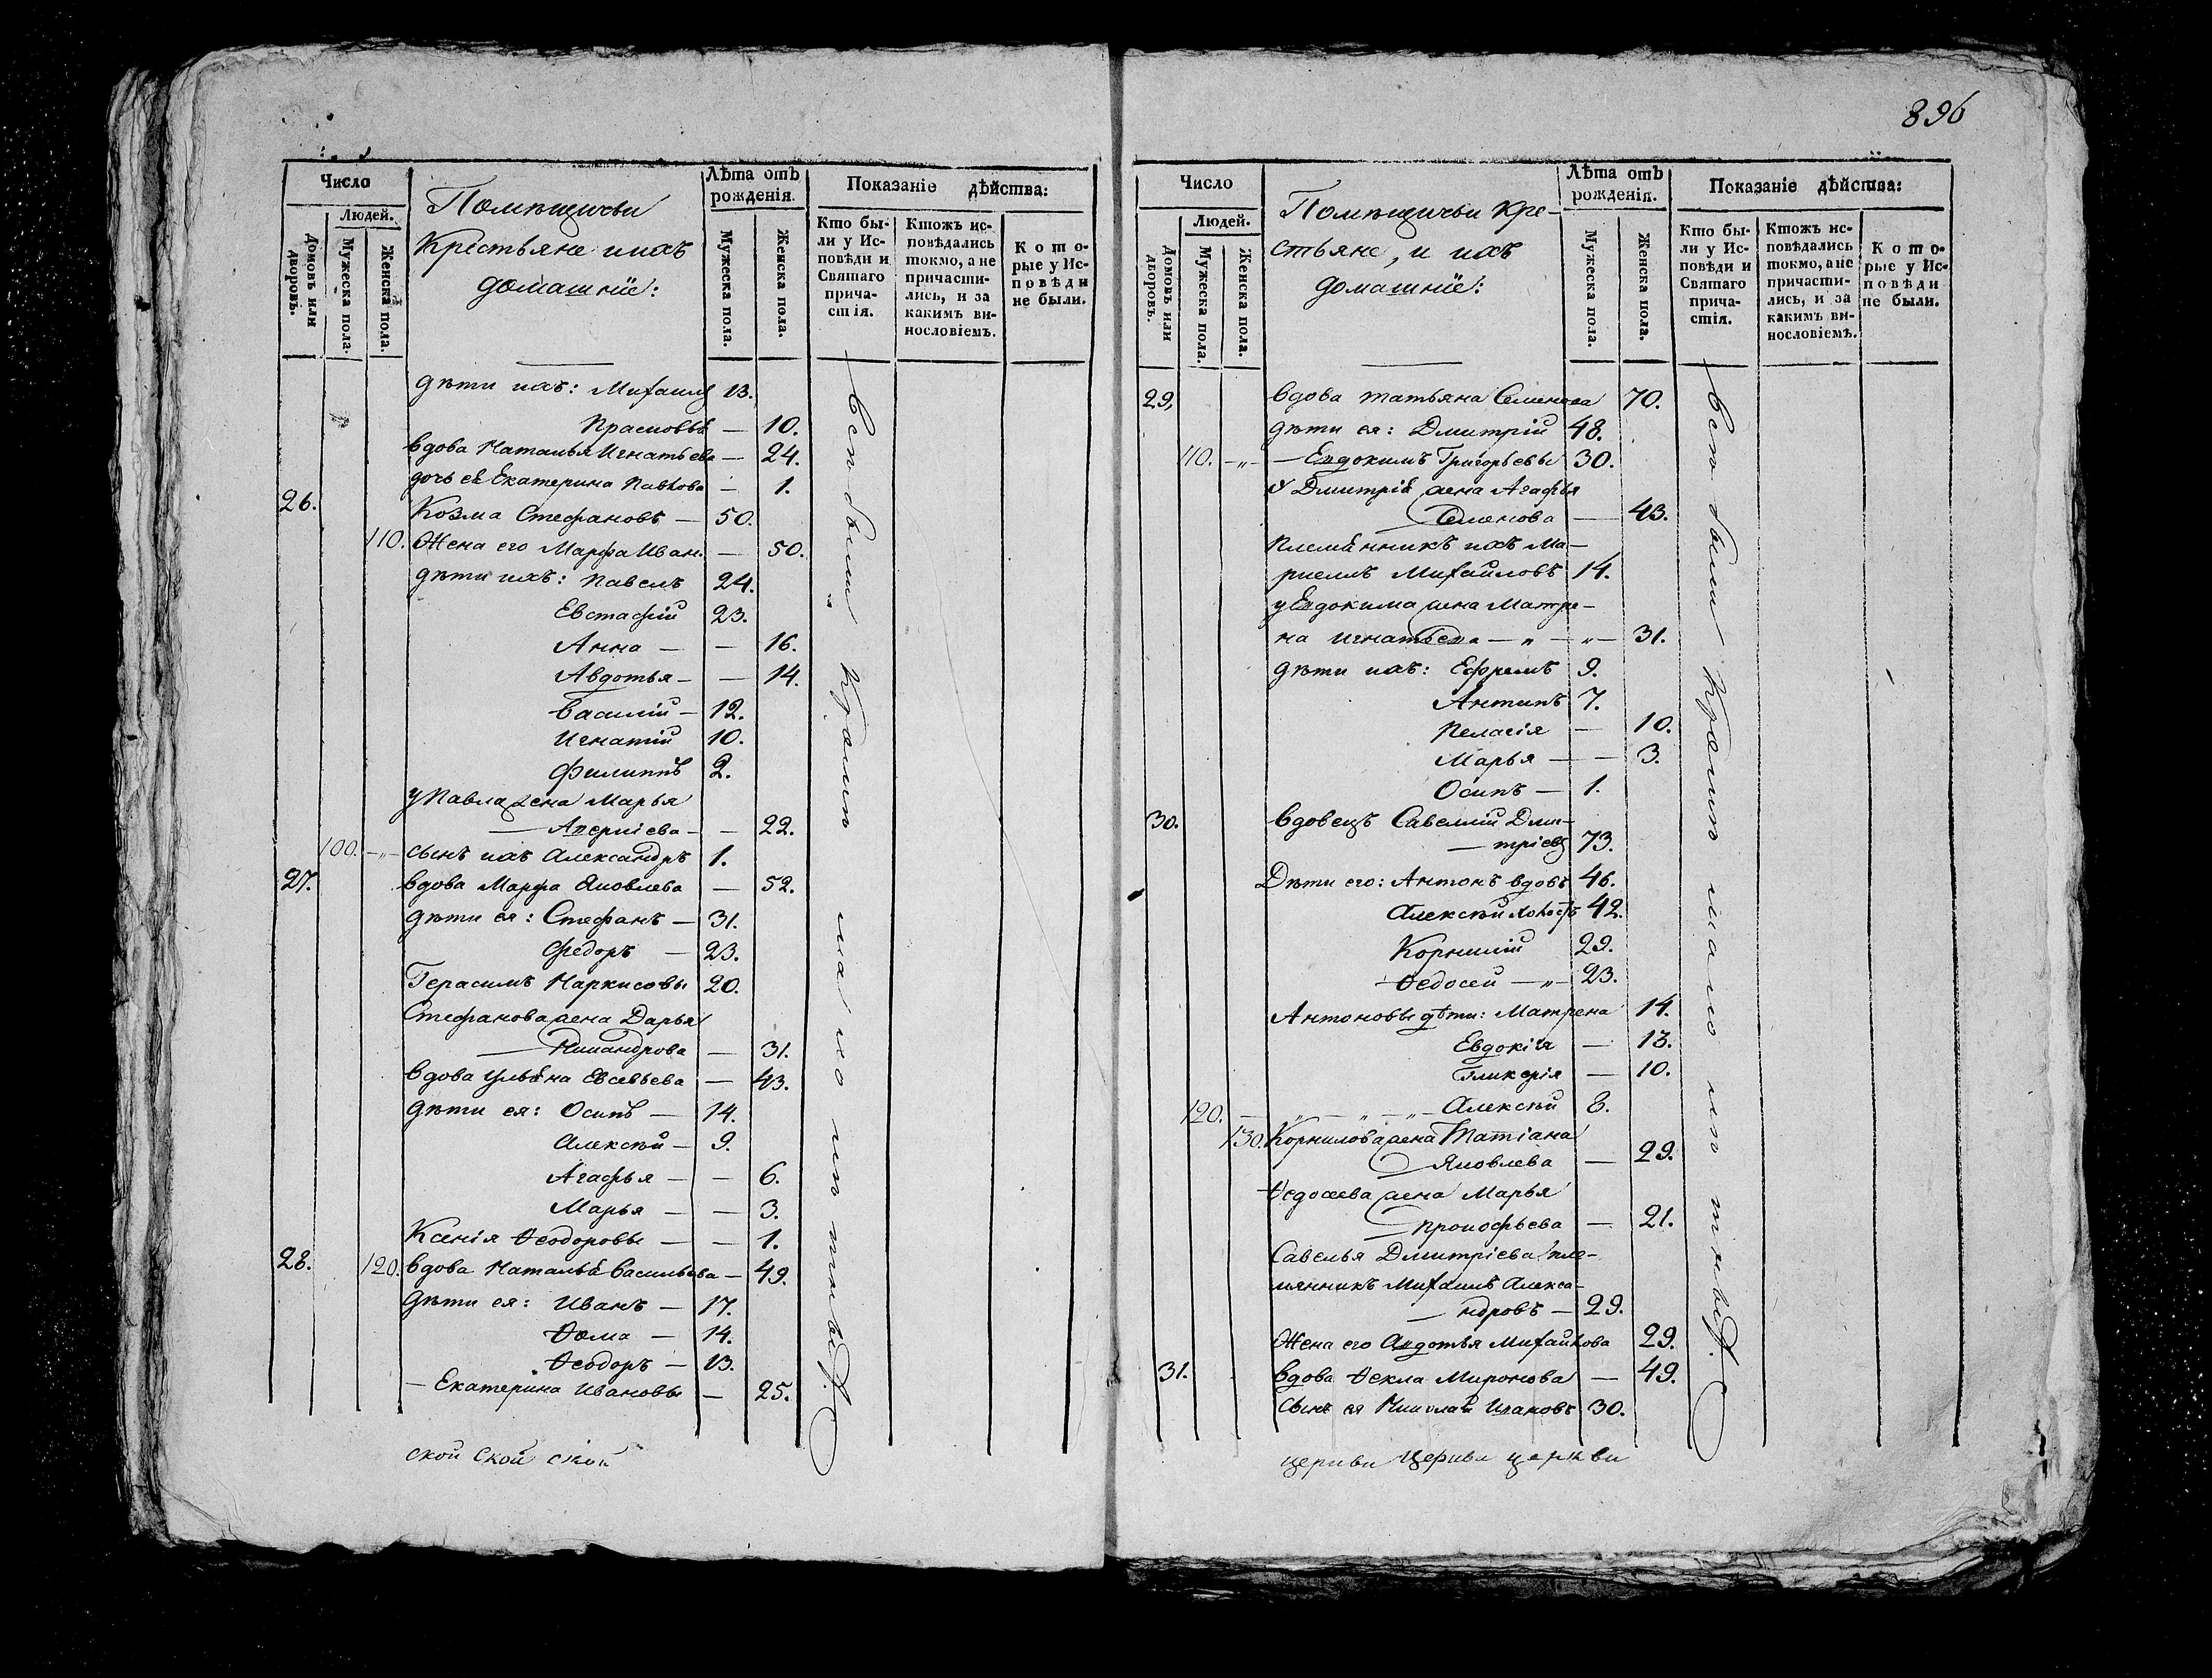 896
Число
Людей.
Домовъ или дворовъ.
Мужеска пола.
Женска пола.
Помѣщичьи
Крестьяне и ихъ
домашніе:
Лѣта отъ
рожденія.
Мужеска пола.
Женска пола.
Показаніе дѣйства:
Кто бы-
ли у Ис-
повѣди и
Святаго
прича-
стія.
Ктожъ ис-
повѣдались
токмо, а не
причасти-
лись, и за
какимъ ви-
нословіемъ.
Кото-
рые у Ис-
повѣди
не были.
дѣти ихъ: Михаилъ 13.
Прасковья — 10.
вдова Наталья Игнатьева — 24.
дочь её Екатерина Павлова — 1.
26. Козма Стефановъ — 50.
110. Жена его Марфа Иван. — 50.
дѣти ихъ: Павелъ 24.
Евстафій 23.
Анна — — 16.
Авдотья — — 14.
Василій — 12.
Игнатій 10.
Филиппъ 2.
у Павла жена Марья
— — 22.
100. —„— сынъ ихъ Александръ 1.
27. вдова Марфа Яковлева — 52.
дѣти ея: Стефанъ — 31.
Федоръ — 23.
Герасимъ Наркисовы 20.
Стефанова жена Дарья
— Никандрова — 31.
вдова Ульяна Евсевьева — 43.
дѣти ея: Осипъ — 14.
Алексѣй — 9.
Агафья — — 6.
Марья — — 3.
Ксенія Ѳеодоровы — — 1.
28. 120. вдова Наталья Васильева — 49.
дѣти ея: Иванъ — 17.
Ѳома — 14.
Ѳеодоръ — 13.
— Екатерина Ивановы — 25.
всѣ были кромѣ малолѣтныхъ.
ской ской ской
Число
Людей.
Домовъ или дворовъ.
Мужеска пола.
Женска пола.
Помѣщичьи Кре-
стьяне, и ихъ
домашніе:
Лѣта отъ
рожденія.
Мужеска пола.
Женска пола.
Показаніе дѣйства:
Кто бы-
ли у Ис-
повѣди и
Святаго
прича-
стія.
Ктожъ ис-
повѣдались
токмо, а не
причасти-
лись, и за
какимъ ви-
нословіемъ.
Кото-
рые у Ис-
повѣди
не были.
29, вдова Татьяна Семенова 70.
дѣти ея: Дмитрій 48.
110. —„— — Евдокимъ Григорьевы 30.
У Дмитрія жена Агафья
Семенова — 43.
племянникъ ихъ
Михайловъ 14.
у Евдокима жена Матре-
на Игнатьева — „ — „ — 31.
дѣти ихъ: Ефремъ 9.
Антипъ 7.
Пелагія — 10.
Марья — — 3.
Осипъ — 1.
30. вдовецъ Савелій Дми-
— тріевъ 73.
Дѣти его: Антонъ вдовъ 46.
Алексѣй холостъ 42.
Корнилій 29.
Ѳедосей —„— 23.
Антоновы дѣти: Матрена 14.
Евдокія — 13.
Гликерія — 10.
120. — „ — „ — „ — Алексѣй 8.
130. Корнилова жена Татіана
Яковлева — 29.
Ѳедосеева жена Марья
Прокофьева — 21.
Савелья Дмитріева пле-
мянникъ Михаилъ Алекса-
— ндровъ — 29.
Жена его Авдотья Михайлова 29.
31. вдова Ѳекла Миронова — 49.
Сынъ ея Николай Ивановъ 30.
всѣ были кромѣ малолѣтныхъ.
церкви церкви церкви